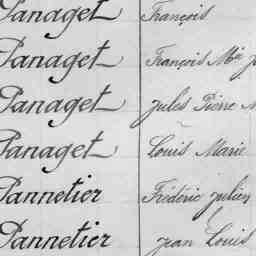 Panaget François
Panaget François Mie
Panaget Jules Pierre
Panaget Louis Marie
Pannetier Frédéric Julien
Pannetier Jean Louis